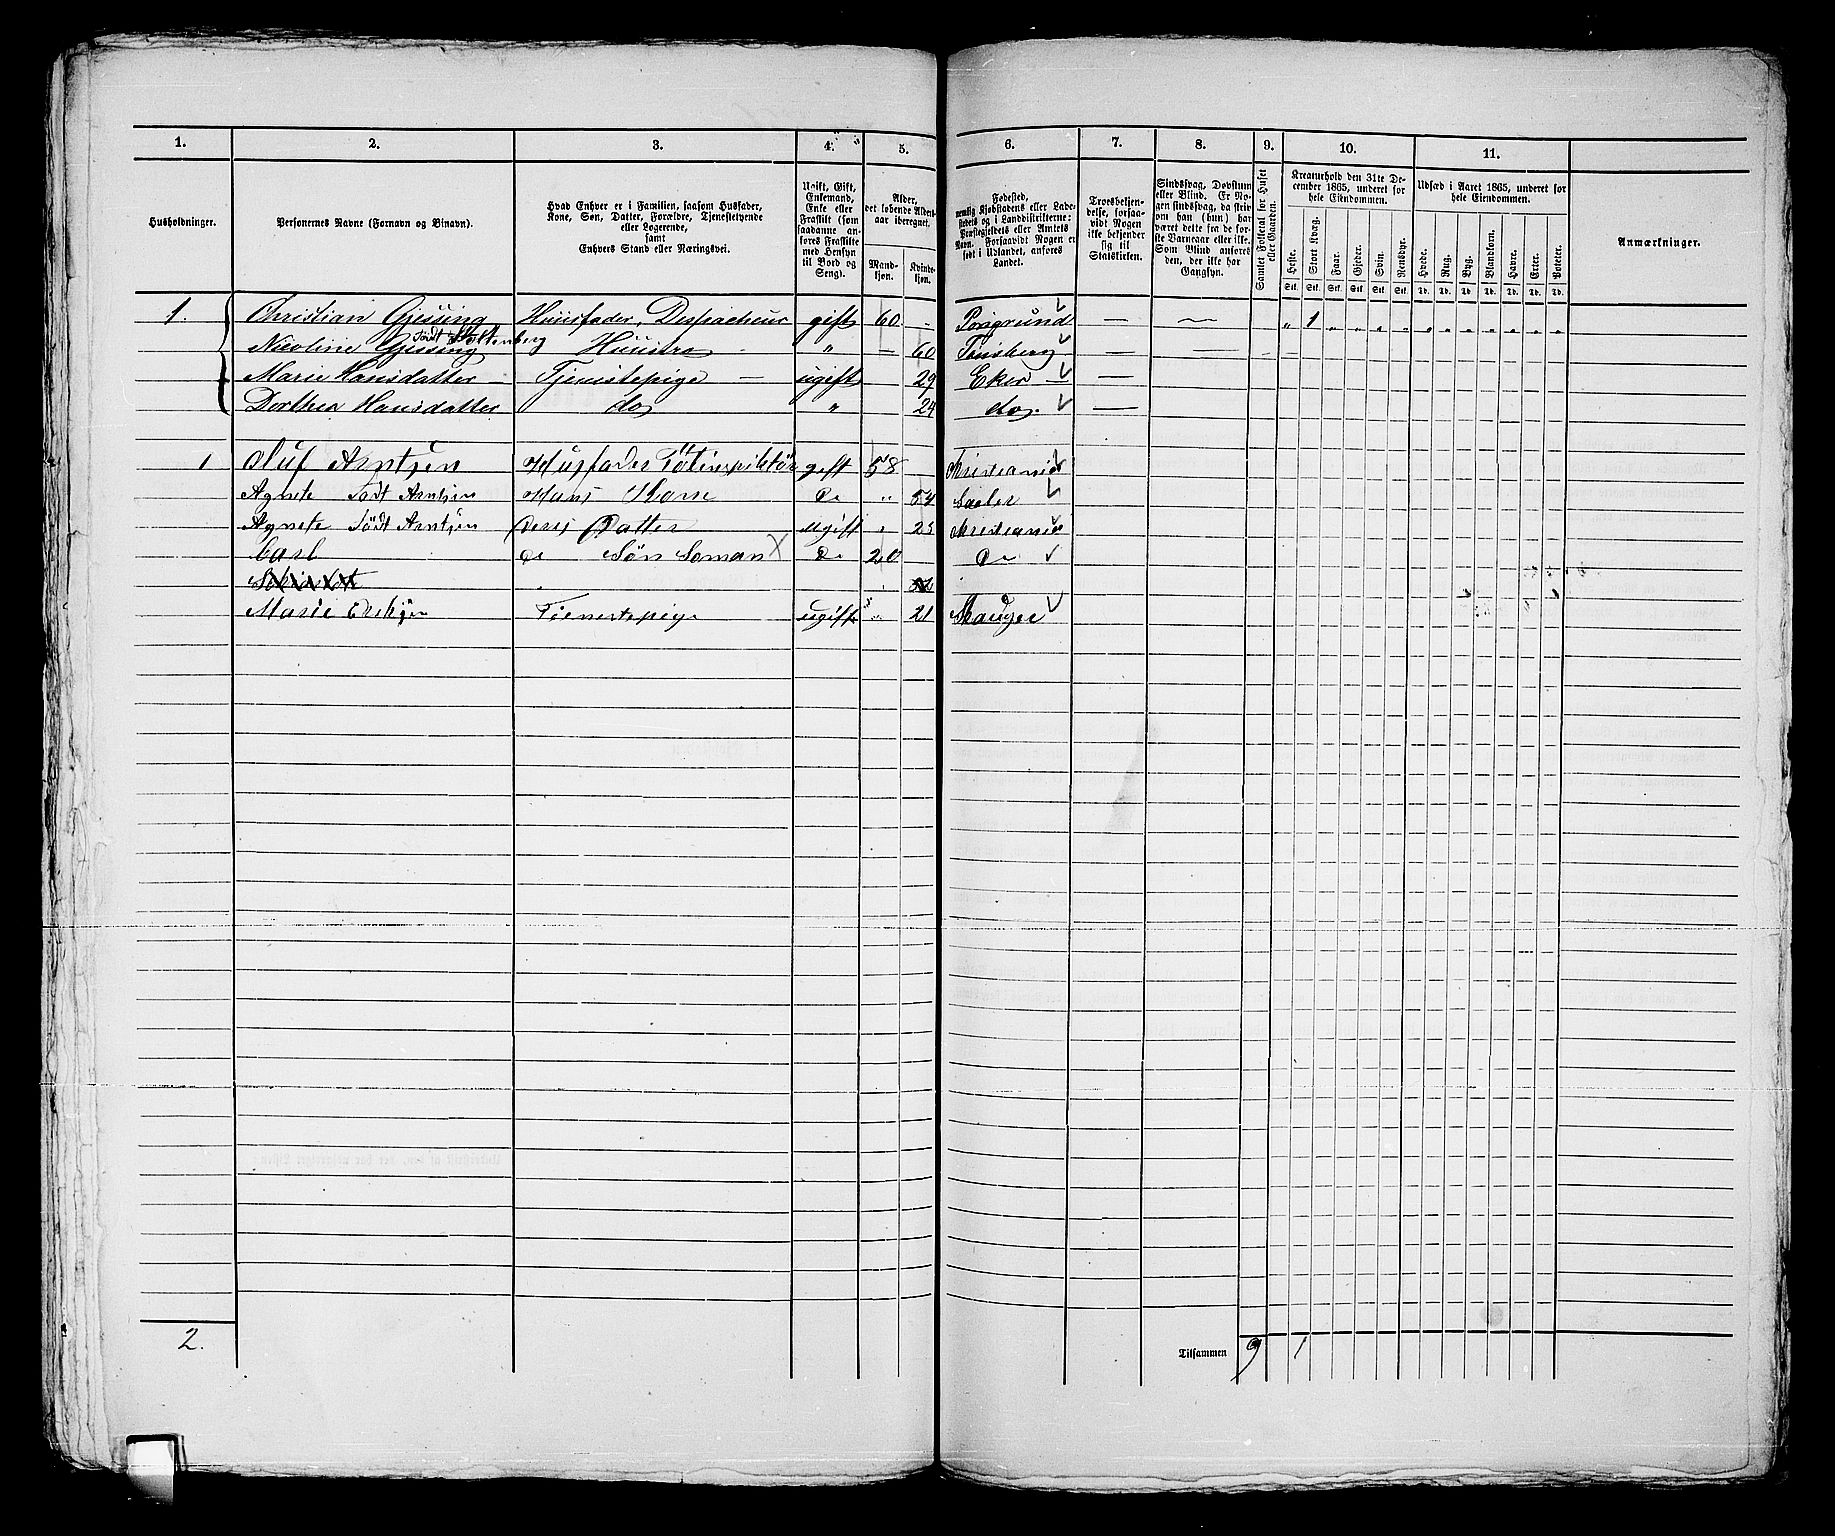 1. 2. 3. 4. 5. 6. 7. 8. 9. 10. 11.
Husholdninger.
Personernes Navne (Fornavn og Binavn).
Hvad Enhver er i Familien, saasom Husfader,
Kone, Søn, Datter, Forældre, Tjenestetyende
eller Logerende,
samt
Enhvers Stand eller Næringsvei.
Ugift, Gift,
Enkemand,
Enke eller
Fraskilt (som
saadanne an-
føres Fraskilte
med Hensyn
til Bord og
Seng).
Alder,
det løbende Alders-
aar iberegnet.
Mand-
kjøn.
Kvinde-
kjøn.
Fødested,
nemlig Kjøbstadens eller Lade-
stedets og i Landdistrikterne:
Præstegjældets eller Amtets
Navn. Forsaavidt Nogen er
født i Udlandet, anføres
Landet.
Troesbekjen-
delse, forsaa-
vidt Nogen
ikke bekjender
sig til
Statskirken.
Sindssvag, Døvstum
eller Blind. Er No-
gen sindssvag, da skriv
om han (hun) har
været dette fra de før-
ste Barneaar eller ikke.
Som Blind anføres
den, der ikke har
Gangsyn.
Samlet Folketal for Huset
eller Gaarden.
Kreaturhold den 31te De-
cember 1865, underet for
hele Eiendommen.
Heste. Stort Kvæg. Faar. Gjeder. Svin. Rensdyr.
Stk. Stk. Stk. Stk. Stk. Stk.
Udsæd i Aaret 1865, underet for
hele Eiendommen.
Hvede. Rug. Byg. Blandkorn. Havre. Erter. Poteter.
Td. Td. Td. Td. Td. Td. Td.
Anmærkninger.
1. Christian Gjessing Huusfader, Despacheur gift 60 - Porsgrund — — „ 1 „ „ „ „ „ „ „ „ „ „ „
Nicoline Gjessing født Stoltenberg Huustro - „ — 60 Tönsberg — — - —
Marie Hansdatter — Tjenestepige — ugift 29 Eker —
Dorthea Hansdatter do „ 24 do. —
1 Oluf Arntzen Husfader gift 58 Kristiania
Agnete Født Arntzen Hans Kone Do „ 54
Agnete Født Arntzen Deres Datter ugift „ 25 Kristiania
Carl do Søn Søman X Do 20 Do
Marie Tienestepige ugift „ 21 Skauger
2.
Tilsammen 9 1